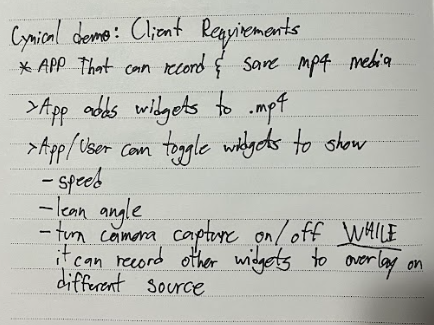 Cynical demo: Client Requirements
* APP That can record & save mp4 media
>App adds widgets to .mp4
>App/User can toggle widgets to show
- speed
- lean angle
- turn camera capture on/off WHILE
it can record other widgets to overlay on
different source